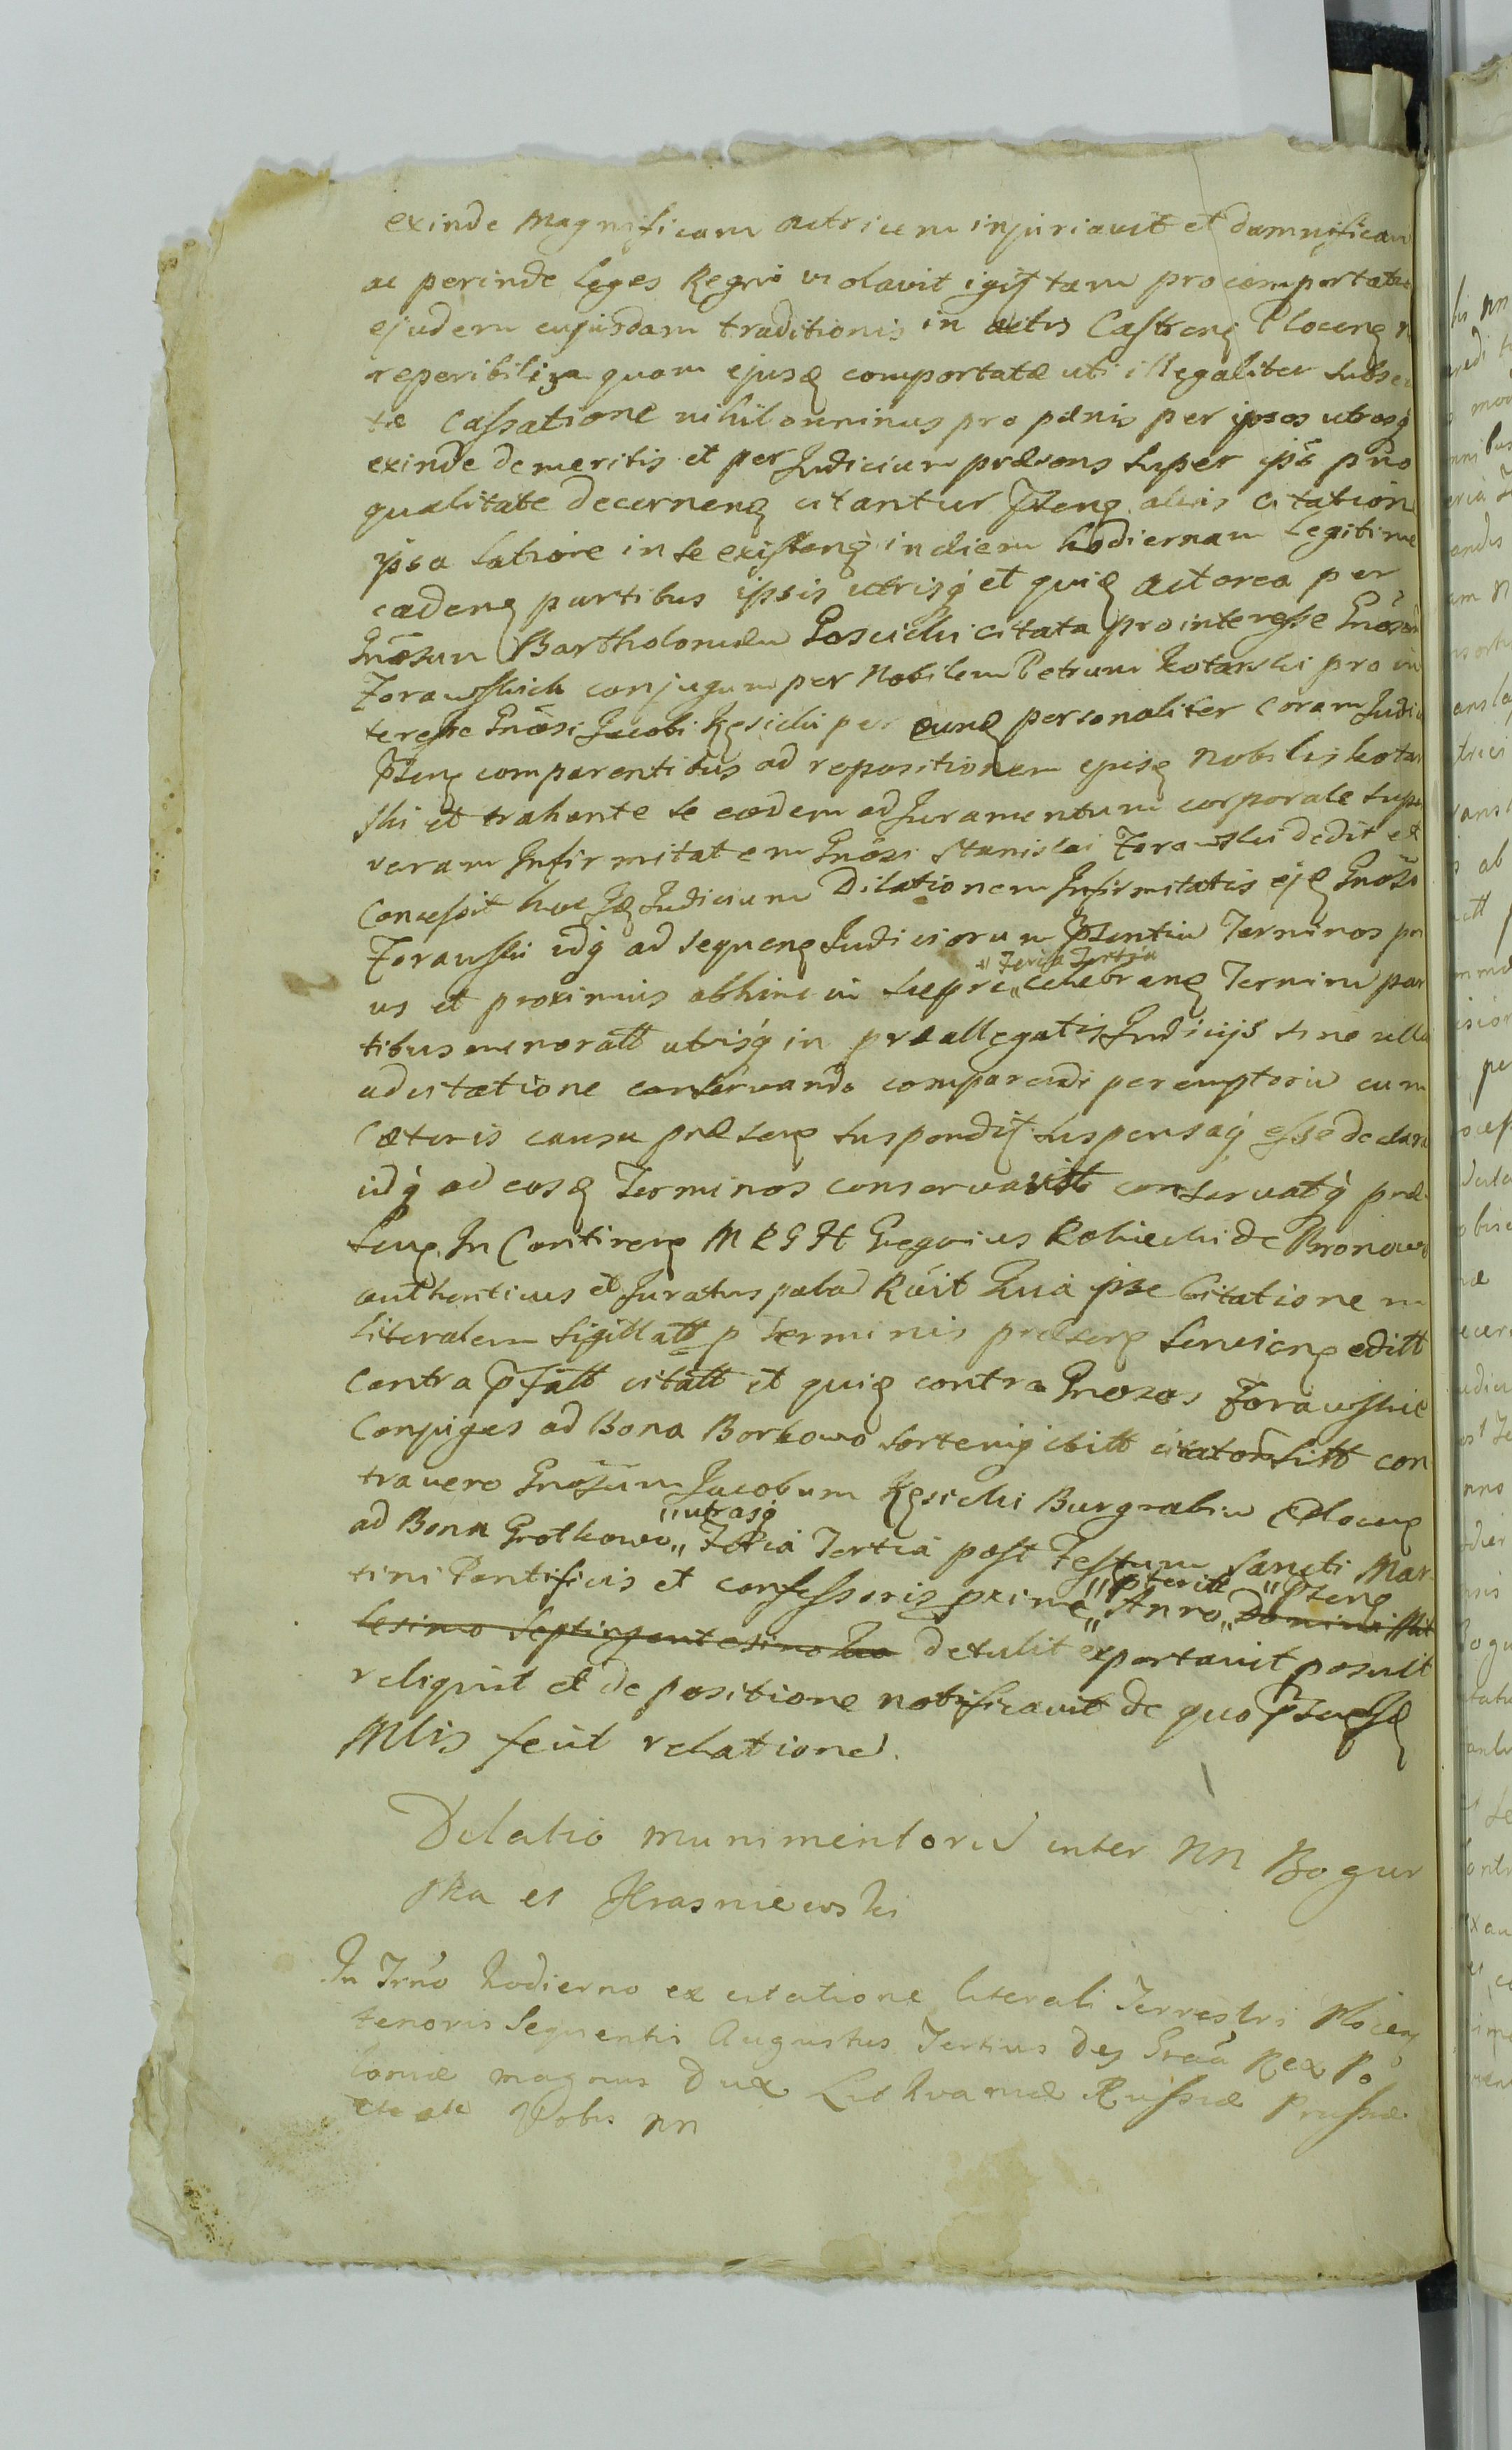 exinde Magnificam actricem injuriavit et damnificav
ac perinde Leges Regni violavit igitur tam pro comportatu
ejudem cujusdam traditionis in actis Castrenς Plocenς n
reperibili za quam ejusς comportatæ uti illegaliter subse
tæ Cassatione nihilominus pro pænis per ipsos utrosq
exinde demeritis et per Judicium præsens super ipš pñō
qualitate decernenς citantur Pñtenς alias citation
ipsa latiore in se existenς in diem hodiernam Legitime
cadenς partibus ipsis utrisq et quiς actorea per
Gnosum Bartholomæu Goscicki citata pro interesse Gnosor
Zorawskich conjugum per Nobilem Petrum Kotarski pro in
teresse Gnosi Jacobi Kęsicki per eunς personaliter Coram Judici
Pñtenς comparentibus ad repositionem ejusς Nobilis kotar
ski et trahente se eodem ad Juramentum corporale supe
veram Infirmitatem Gnosi Stanislai Zorawski dedit et
Concessit hoc Jς Judicium Dilationem Infirmitatis ejς Gnosi
Zorawski idq ad sequenς Judiciorum Pñtium Terminos pri
us et proximius abhinc in Sierpc " Feria Tertia celebrenς Terminu par
tibus memoratt utrisq in præallegatis Judicijs sine ulla
adcitatione conservando comparendi peremptoriu cum
Cæteris causa præsenς suspendit suspensaq esse declara
idq ad eosς Terminos conservavitt conservatq præ
senς. In Continenς M R G H Gregorius Rokicki de Bronowo
authenticus et Juratus palam Rcúit Quia ipse Citatione m
literalem Sigillatt p Terminis præsenς Servienς editt
Contra Pfatt citatt et quiς contra Gnosos Zorawskie
Conjuges ad Bona Borkowo sortemq ibitt citatorsitt con
tra vero Gnosum Jacobum Kęsicki Burgrabiu Plocenς
ad Bona Grotkowo " utrasq Feria Tertia post Festum Sancti Mar-
tini Pontificis et confessoris proxime " pterita Anno " Pñtenς Domini Mil
lesimo Septingentesimo detulit exportavit posuitt
reliquit et de positione notificavit de quo Pñtenς Jς
Mlis fecit relatione.
Delatio munimentoru inter NN Bogur
ska et Krasniewski
In Trno hodierno ex citatione literali Terrestri Plocenς
tenoris Sequentis Augustus Tertius Dej Graã Rex Po
loniæ magnus Dux Lithvaniæ Russiæ Prussiæ
etc etc Vobis NN